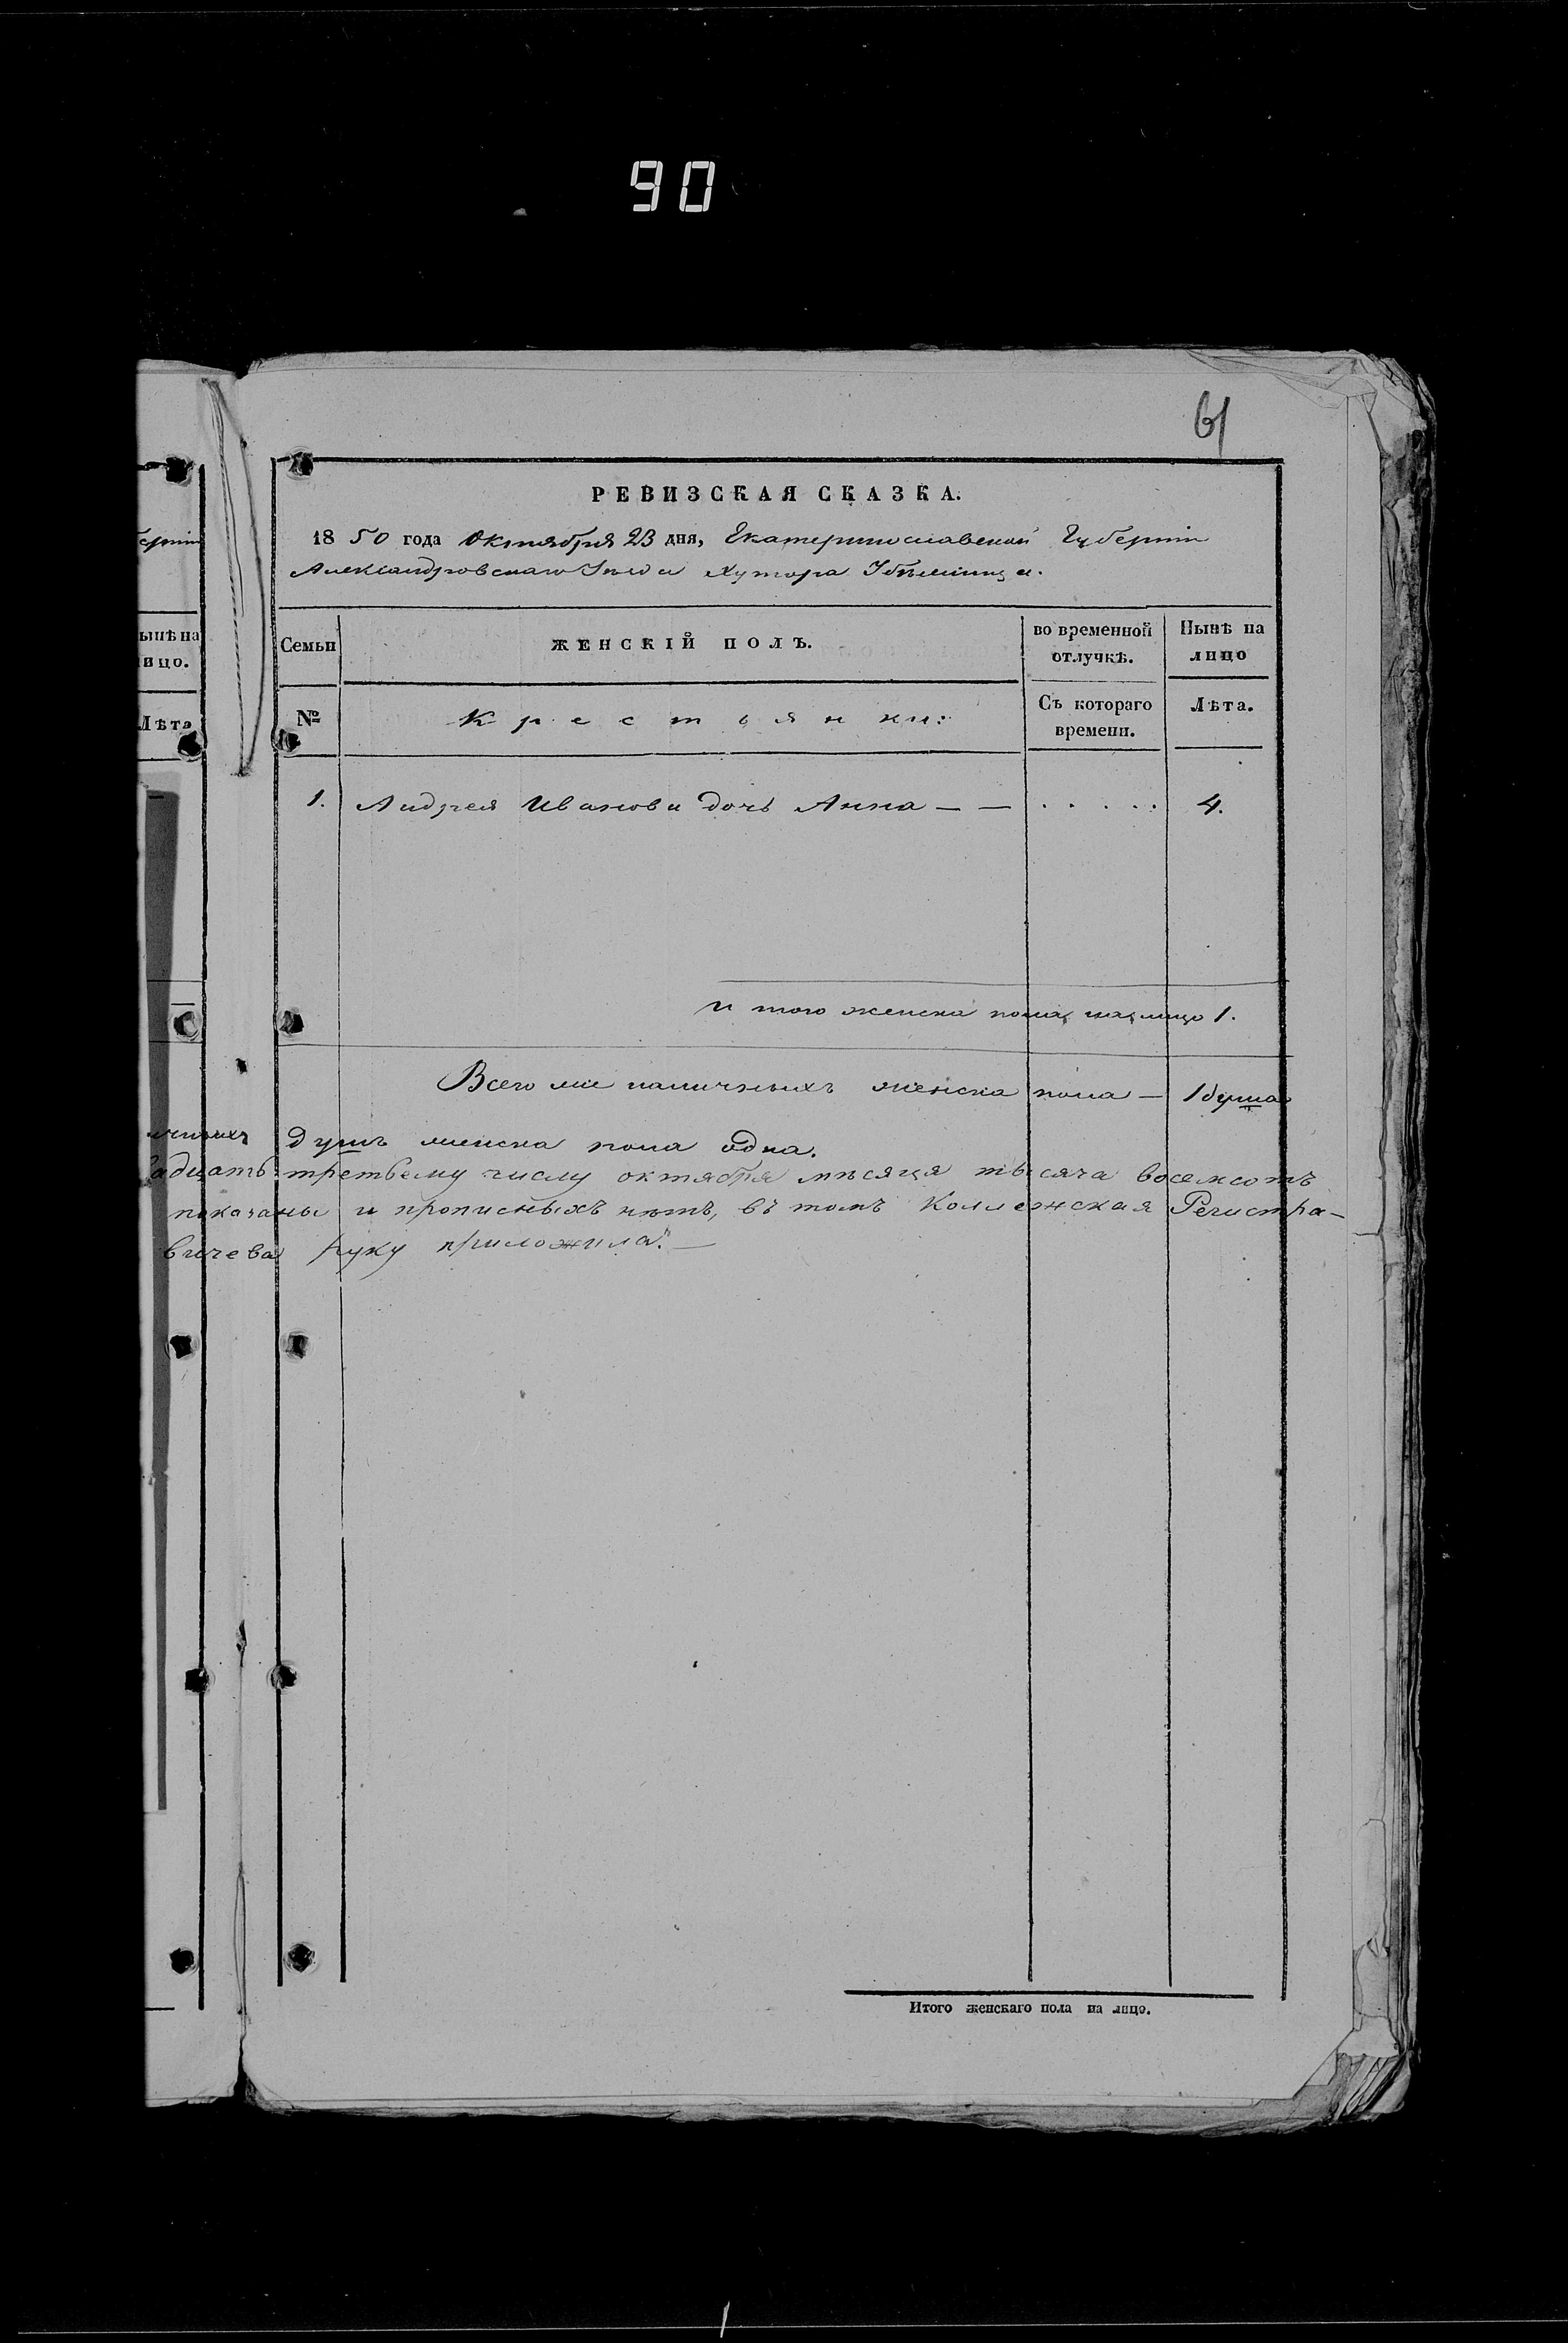 90
61
РЕВИЗСКАЯ СКАЗКА.
1850 года Октября 23 дня, Екатеринославской Губернiи
Александровскаго Уѣзда Хутора
ынѣ на
ицо.
Лѣта
Семьи
ЖЕНСКIЙ ПОЛЪ.
во временной отлучкѣ.
Нынѣ на лицо
№
Крестьянки:
Съ котораго времени.
Лѣта.
1. Андрея Иванова дочь Анна — — . . . . . 4.
и того женска пола на лицо 1.
Всего же наличныхъ женска пола — 1 душа
душъ женска пола одна.
адцать третьему числу октября мѣсяца тысяча восемсотъ
показаны и прописныхъ нѣтъ, въ томъ Коллежская Регистра-
вичева руку приложила. —
Итого женскаго пола на лицо.